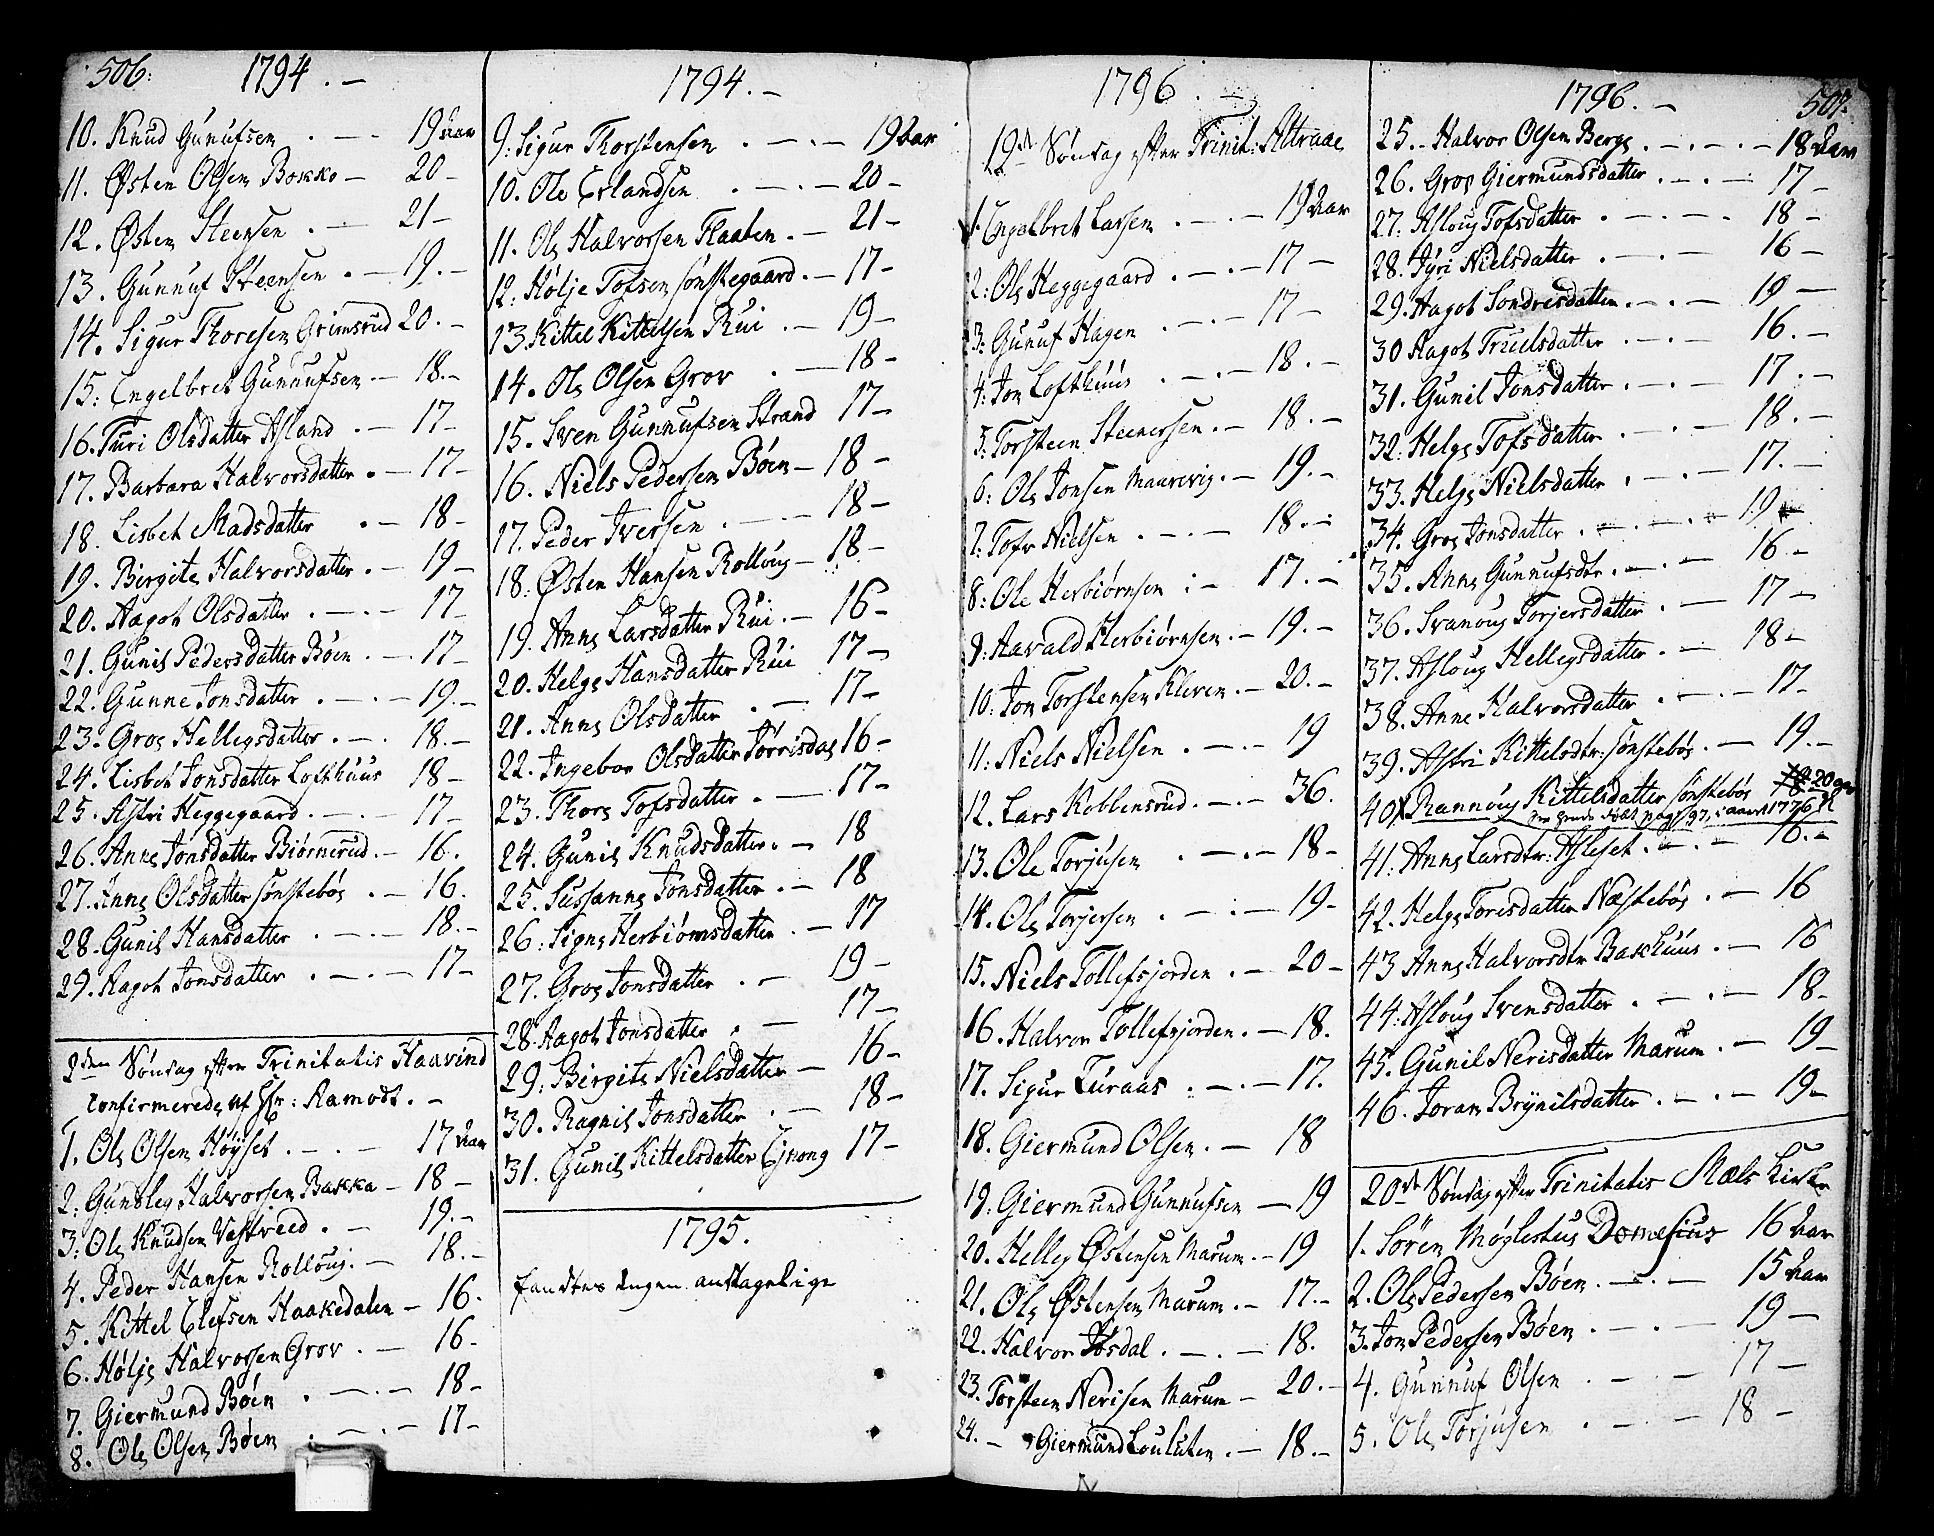 506. 1794. –
10. Knud Gunufsen . – . 19 Aar
11. Østen Olsen Bokko – 20 –
12. Østen Steensen . – 21 –
13. Gunnuf Steensen . – 19. –
14. Sigur Thoresen Grimsrud 20. –
15. Engelbret Gunnufsen – 18. –
16. Turi Olsdatter Asland . – 17 –
17. Barbara Halvorsdatter . – 17 –
18. Lisbet Madsdatter . – 18 –
19. Birgite Halvorsdatter . – 19 –
20. Aagot Olsdatter . – . – 17
21. Gunil Pedersdatter Bøen . – 17 –
22. Gunne Jonsdatter . – . – 19. –
23. Groe Hellegsdatter . – . 18. –
24. Lisbet Jonsdatter Lofthuus 18 –
25. Astri Heggegaard . – . – 17 –
26. Anne Jonsdatter Biørnerud . – 16.
27. Anne Olsdatter Sønstebøe . – 16.
28. Gunil Hansdatter . – . – 18. –
29. Aagot Jonsdatter . – . – 17 –
2den Søndag efter Trinitatis Haavind
Confirmerede af Hr: Aamodt. –
1. Ole Olsen Høyset . – . – 17 Aar
2. Gundleg Halvorsen Bakka – 18 –
3. Ole Knudsen Vastveed . – 19. –
4. Peder Hansen Rolloug . – 18. –
5. Kittel Olefsen Haakedalen – 16.
6. Hølje Halvorsen Grov . – 16 –
7. Giermund Bøen . – . – 18 –
8. Ole Olsen Bøen . – . – 17 –
1794. –
9. Sigur Thorstensen . – . – 19 Aar
10. Ole Erlandsen . – . – 20 –
11. Ole Halvorsen Flaaten . – 21 –
12. Hølje Tofsen Sønstegaard . – 17 –
13. Kittel Kittelsen Rui . – 19 –
14. Ole Olsen Grov . – 18 –
15. Sven Gunnufsen Strand 17 –
16. Niels Pedersen Bøen – 18 –
17. Peder Iversen . – . – 18 –
18. Østen Hansen Rolloug – 18 –
19. Anne Larsdatter Rui . – 16 –
20. Helge Hansdatter Rui 17 –
21. Anne Olsdatter . – . 17 –
22. Ingebor Olsdatter Jørrisdal 16 –
23. Thore Tofsdatter . – 17 –
24. Gunil Knudsdatter . – 18
25. Sussanne Jonsdatter . – 18
26. Signe Herbiørnsdatter . – 17
27. Groe Jonsdatter . – 19 –
28. Aagot Jonsdatter . – 17 –
29. Birgite Nielsdatter – 16 –
30. Ragnil Jonsdatter . – 18 –
31. Gunil Kittelsdatter 17 –
1795.
fandtes ingen antagelige
1796. –
19de Søndag efter Trinit: Attraae
1. Engelbret Larsen . – . – 19 Aar
2. Ole Heggegaard . – . – 17 –
3. Gunuf Hagen . – . – 17 –
4. Jon Lofthuus . – . – 18. –
5. Torsteen Steenersen . – 18. –
6. Ole Jonsen Maurevig . – 19. –
7. Tofv Nielsen . – . – 18. –
8. Ole Herbiørnsen : – 17. –
9. Aavald Herbiørnsen . – 19. –
10. Jon Torstensen Kleven . – 20. –
11. Niels Nielsen . – . – 19
12. Lars Koblensrud . – . – 36.
13. Ole Torjusen . – . – 18 –
14. Ole Torjersen . – . – 19 –
15. Niels Tollefsjorden . – 20 –
16. Halvor Tollefsjorden . – 18.
17. Sigur Turaas . – . – 17.
18. Giermund Olsen . – 18
19. Giermund Gunnufsen – 19
20. Helleg Østensen Marum . – 19
21. Ole Østensen Marum . – 17. –
22. Halvor Jøsdal . – . – 18.
23. Torsteen Nerisen Marum – 20. –
24. – Giermund Louluten . – 18. –
1796. – 507.
25. Halvor Olsen Berge . – . – 18 Aar
26. Groe Giermundsdatter . – . 17 –
27. Asloug Tofsdatter . – . – 18 –
28. Jyri Nielsdatter . – . – 16 –
29. Aagot Sondresdatter . – . – 19 –
30 Aagot Truelsdatter . – . – 16. –
31. Gunil Jonsdatter . – . – 17. –
32. Helge Tofsdatter . – . – 18. –
33. Helge Nielsdatter . – . – 17. –
34. Groe Jonsdatter . – . – 19
35. Anne Gunnufsdtr . – . – 16 –
36. Svanoug Torjersdatter . – 17 –
37. Asloug Hellegsdatter . – 18 –
38. Anne Halvorsdatter . – . – 17 –
39. Astri Kittelsdtr: Sønstebøe . – 19. –
40 Rannoug Kittelsdatter Sønstebøe 20
pag: 97, i aaret 1776
41. Anne Larsdtr: Asleset . – . – 16. –
42. Helge Torisdatter Næstebøe . – 16
43 Anne Halvorsdtr Bakhuus . – 16
44. Asloug Svensdatter . – . – 18 –
45. Gunil Nerisdatter Marum . – 19 –
46. Joran Brynilsdatter . – . – 19 –
20de Søndag efter Trinitatis Mæls Kirke
1. Søren Møglestue Domesius 16 Aar
2. Ole Pedersen Bøen . – . – 15 Aar
3. Jon Pedersen Bøen . – . – 19 –
4. Gunnuf Olsen . – . – 17 –
5. Ole Torjusen . – . – 18 –